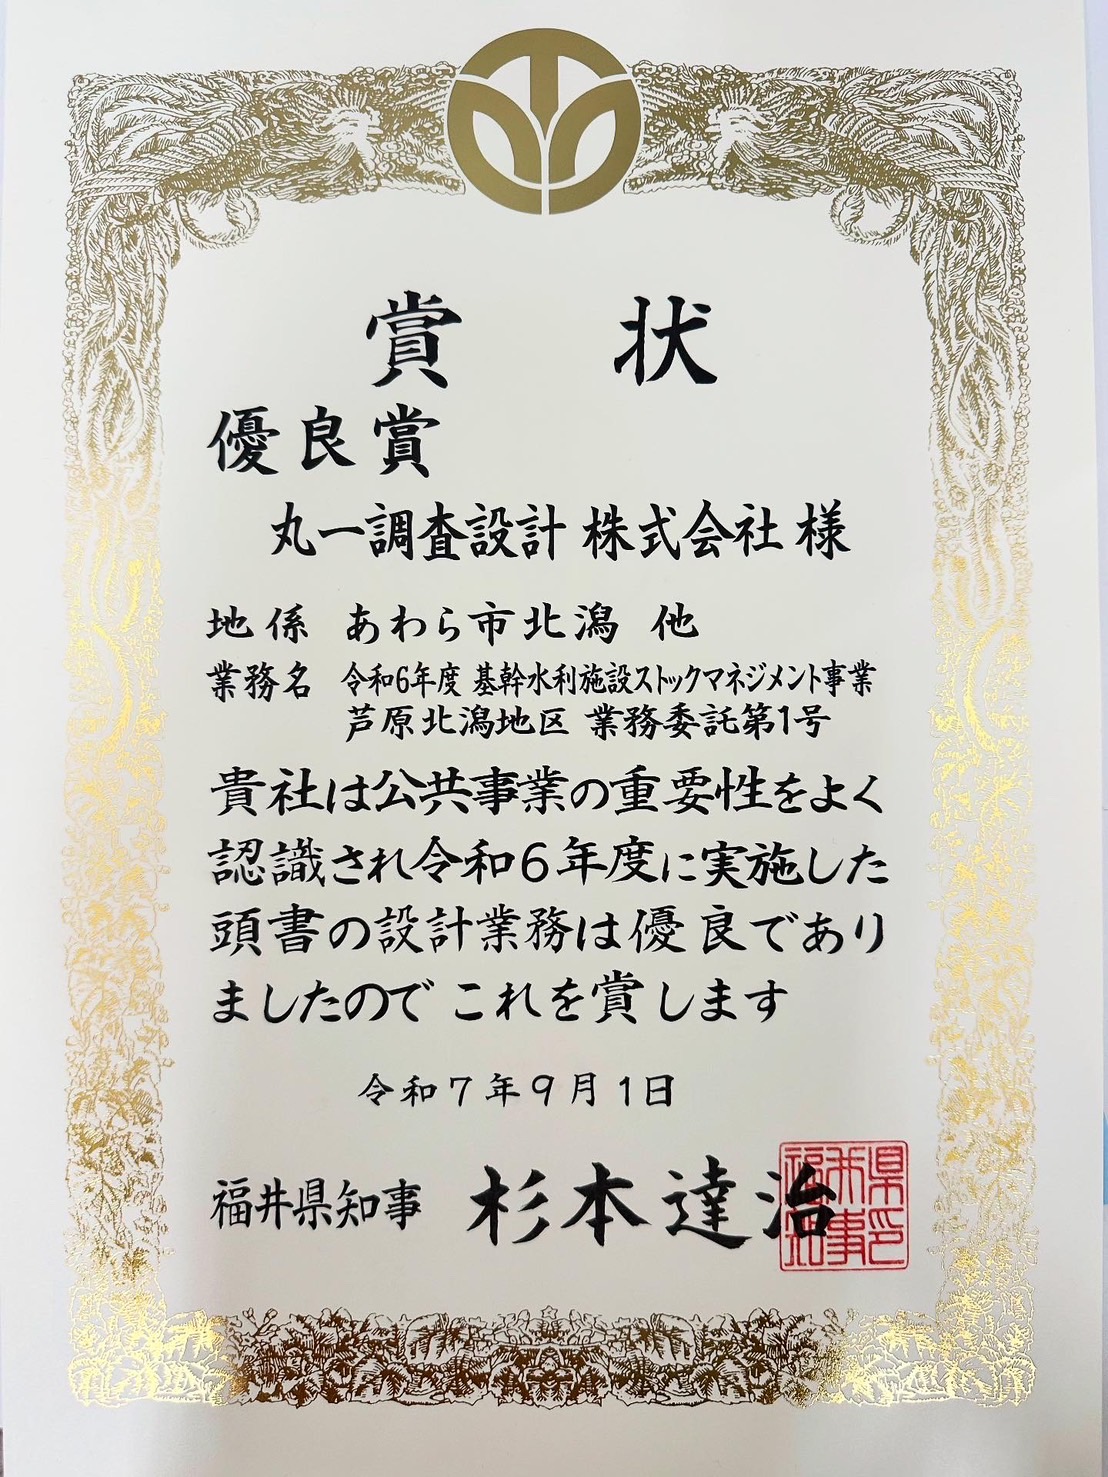 賞状
優良賞
丸一調査設計 株式会社 様
地係 あわら市北潟 他
業務名 令和6年度 基幹水利施設ストックマネジメント事業
芦原北潟地区 業務委託第1号
貴社は公共事業の重要性をよく
認識され令和6年度に実施した
頭書の設計業務は優良であり
ましたのでこれを賞します
令和7年9月1日
福井県知事 杉本達治